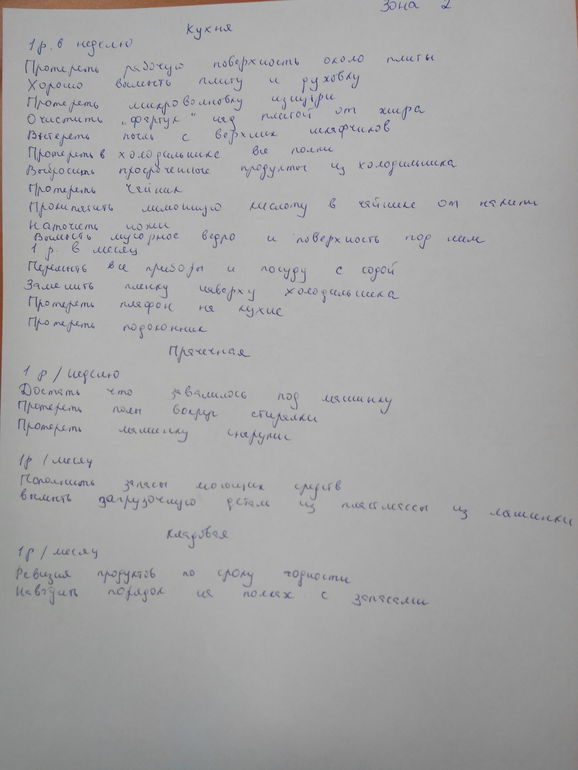 Зона 2
Кухня
1 р. в неделю
Протереть рабочую поверхность около плиты
Хорошо вымыть плиту и духовку
Протереть микроволновку изнутри
Очистить "фартук" над плитой от жира
Вытереть пыль с верхних шкафчиков
Протереть в холодильнике все полки
Выбросить просроченные продукты из холодильника
Протереть чайник
Прокипятить лимонную кислоту в чайнике от накипи
Наточить ножи
Вымыть мусорное ведро и поверхность под ним
1 р. в месяц
Перемыть все приборы и посуду с содой
Заменить пленку наверху холодильника
Протереть плафон на кухне
Протереть подоконник
Прачечная
1 р / неделю
Достать что завалилось под машинку
Протереть полы вокруг стиралки
Протереть машинку снаружи
1р / месяц
Пополнить запасы моющих средств
вымыть загрузочную детали из пластмассы из машинки
Кладовая
1 р / месяц
Ревизия продуктов по сроку годности
Наводить порядок на полках с запасами